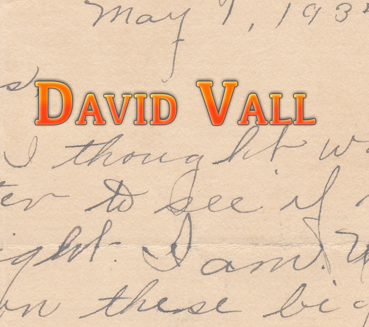 May 1, 193
s,
DAVID VALL
I thought w
ter to see if
ight. I am.
on these big